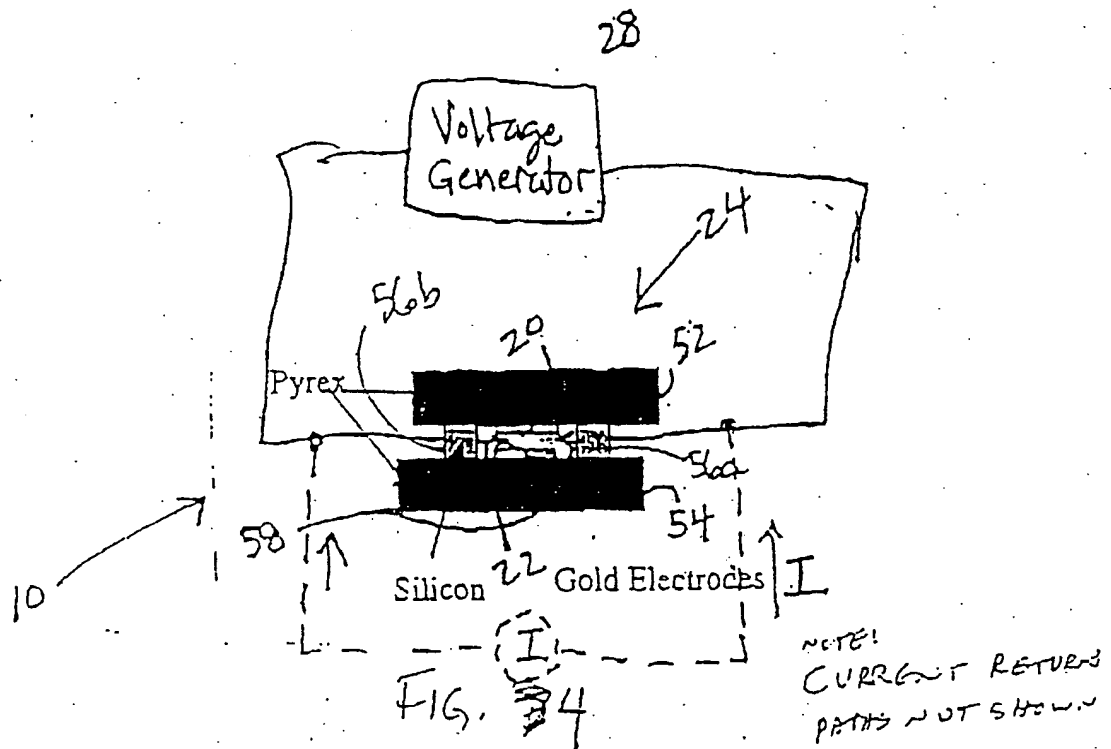 28
Voltage
Generator
24
56b
20
52
Pyrex
56a
54
58
22
10
Silicon
Gold Electrodes
I
I
FIG. 4
NOTE!
CURRENT RETURNS
PATHS NOT SHOWN